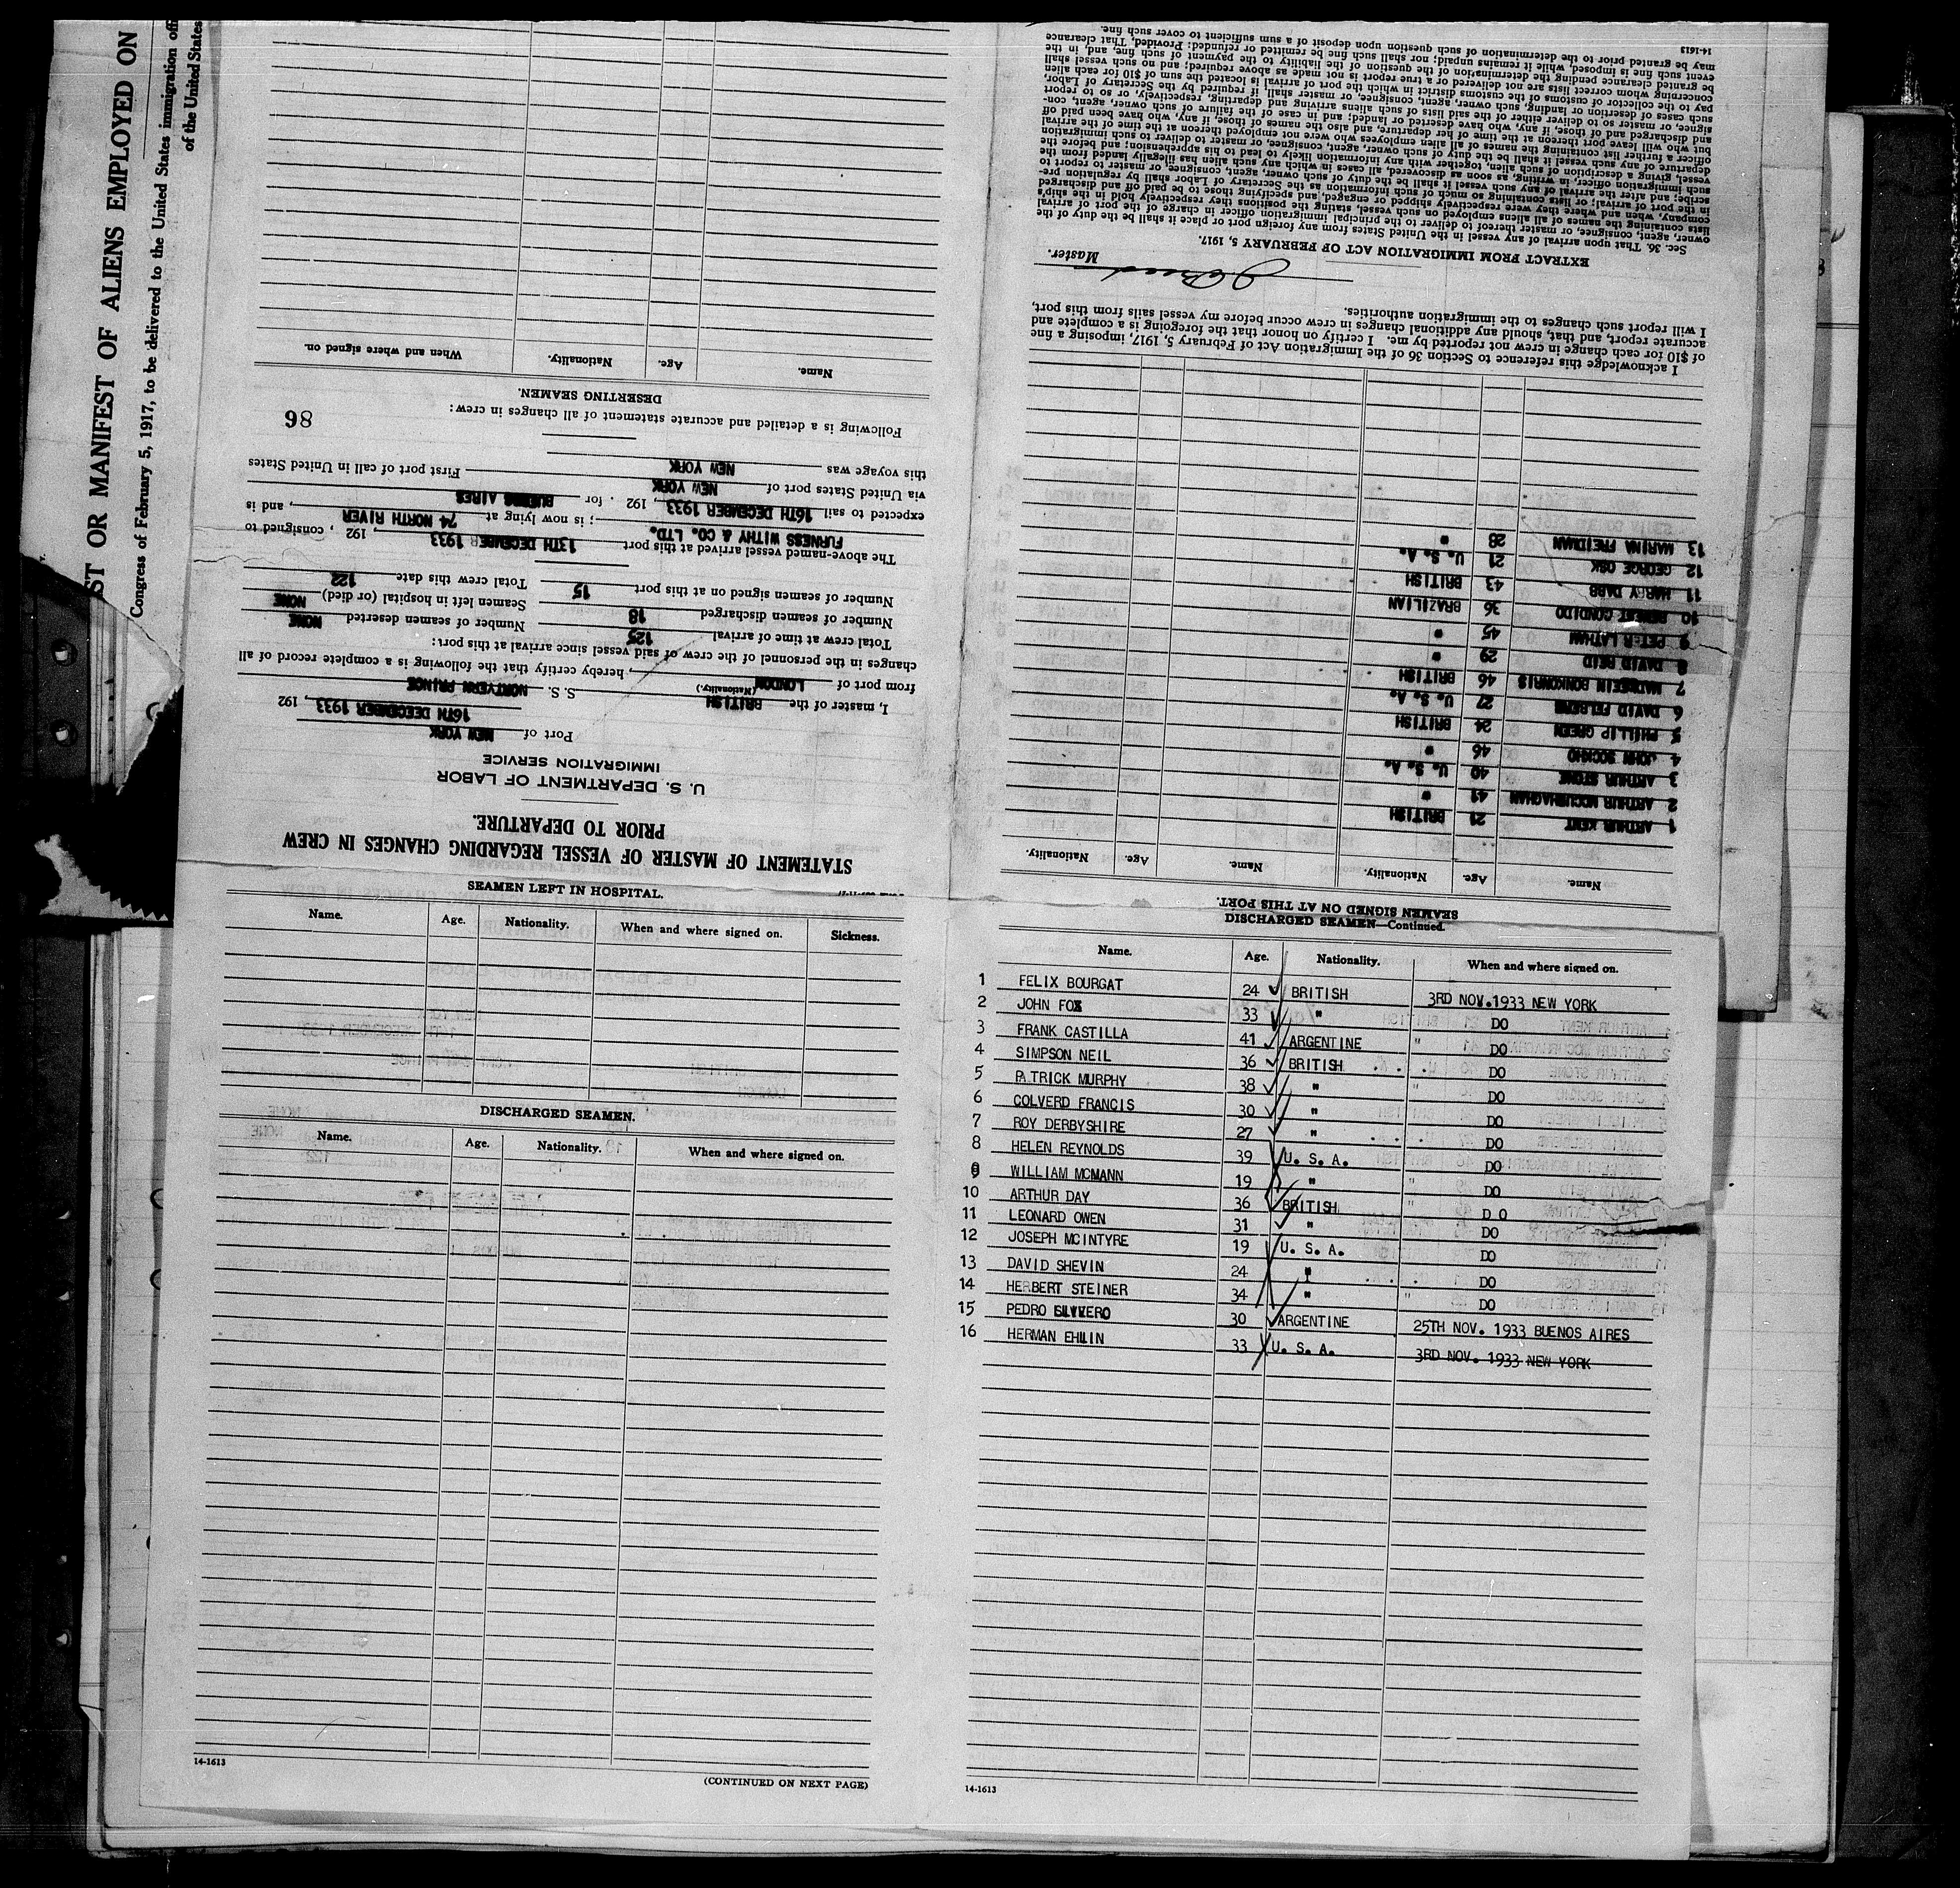 ST OR MANIFEST OF ALIENS EMPLOYED ON
Congress of February 5, 1917, to be delivered to the United States immigration off
of the United States
STATEMENT OF MASTER OF VESSEL REGARDING CHANGES IN CREW
PRIOR TO DEPARTURE.
U. S. DEPARTMENT OF LABOR
IMMIGRATION SERVICE
Port of NEW YORK
16TH DEECEMBER 1933, 192
I, master of the BRITISH S. S. NORTVERN PRINCE
(Nationality.)
from port of LONDON, hereby certify that the following is a complete record of all
changes in the personnel of the crew of said vessel since arrival at this port:
Total crew at time of arrival 125 Number of seamen deserted NONE
Number of seamen discharged 18 Seamen left in hospital (or died) NONE
Number of seamen signed on at this port 15 Total crew this date 122
The above-named vessel arrived at this port 13TH DECEMBER 1933, 192 , consigned to
FURNESS WITHY & CO. LTD. ; is now lying at 74 NORTH RIVER, and is
expected to sail 16TH DECEMBER 1933, 192 . for BUENOS AIRES
via United States port of NEW YORK First port of call in United States
this voyage was NEW YORK
Following is a detailed and accurate statement of all changes in crew:
98
DESERTING SEAMEN.
Name. Age. Nationality. When and where signed on.
SEAMEN LEFT IN HOSPITAL.
Name. Age. Nationality. When and where signed on. Sickness.
DISCHARGED SEAMEN.
Name. Age. Nationality. When and where signed on.
14-1613
(CONTINUED ON NEXT PAGE)
DISCHARGED SEAMEN—Continued.
Name. Age. Nationality. When and where signed on.
1 FELIX BOURGAT 24 BRITISH 3RD NOV. 1933 NEW YORK
2 JOHN FOX 33 " DO
3 FRANK CASTILLA 41 ARGENTINE " DO
4 SIMPSON NEIL 36 BRITISH DO
5 PATRICK MURPHY 38 " DO
6 COLVERD FRANCIS 30 " DO
7 ROY DERBYSHIRE 27 " DO
8 HELEN REYNOLDS 39 U. S. A. DO
9 WILLIAM MCMANN 19 " DO
10 ARTHUR DAY 36 BRITISH D O
11 LEONARD OWEN 31 " DO
12 JOSEPH MCINTYRE 19 U. S. A. DO
13 DAVID SHEVIN 24 " DO
14 HERBERT STEINER 34 " DO
15 PEDRO 30 ARGENTINE 25TH NOV. 1933 BUENOS AIRES
16 HERMAN EHLIN 33 U. S. A. 3RD NOV. 1933 NEW YORK
14-1613
SEAMEN SIGNED ON AT THIS PORT.
Name. Age. Nationality. Name. Age. Nationality.
1 ARTHUR KENT 21 BRITISH
2 ARTHUR MCCUBHAGHAN 41 "
3 ARTHUR STONE 40 U. S. A.
4 JOHN SOCKHO 46 "
5 PHILLIP GREEN 24 BRITISH
6 DAVID 27 U. S. A.
7 BONKORRIS 46 BRITISH
8 DAVID REID 29 "
9 PETER LATHAM 45 "
10 CONDIDO 36 BRAZILIAN
11 HARRY DARB 43 BRITISH
12 GEORGE OSK 21 U. S. A.
13 MARINA FREIDMAN 28 "
I acknowledge this reference to Section 36 of the Immigration Act of February 5, 1917, imposing a fine
of $10 for each change in crew not reported by me. I certify on honor that the foregoing is a complete and
accurate report, and that, should any additional changes in crew occur before my vessel sails from this port,
I will report such changes to the immigration authorities.
Master.
EXTRACT FROM IMMIGRATION ACT OF FEBRUARY 5, 1917.
Sec. 36. That upon arrival of any vessel in the United States from any foreign port or place it shall be the duty of the
owner, agent, consignee, or master thereof to deliver to the principal immigration officer in charge of the port of arrival
lists containing the names of all aliens employed on such vessel, stating the positions they respectively hold in the ship's
company, when and where they were respectively shipped or engaged, and specifying those to be paid off and discharged
in the port of arrival; or lists containing so much of such information as the Secretary of Labor shall by regulation pre-
scribe; and after the arrival of any such vessel it shall be the duty of such owner, agent, consignee, or master to report to
such immigration officer, in writing, as soon as discovered, all cases in which any such alien has illegally landed from the
vessel, giving a description of such alien, together with any information likely to lead to his apprehension; and before the
departure of any such vessel it shall be the duty of such owner, agent, consignee, or master to deliver to such immigration
officer a further list containing the names of all alien employees who were not employed thereon at the time of the arrival
but who will leave port thereon at the time of her departure, and also the names of those, if any, who have been paid off
and discharged and of those, if any, who have deserted or landed; and in case of the failure of such owner, agent, con-
signee, or master so to deliver either of the said lists of such aliens arriving and departing, respectively, or so to report
such cases of desertion or landing, such owner, agent, consignee, or master shall if required by the Secretary of Labor,
pay to the collector of customs of the customs district in which the port of arrival is located the sum of $10 for each alien
concerning whom correct lists are not delivered or a true report is not made as above required; and no such vessel shall
be granted clearance pending the determination of the question of the liability to the payment of such fine, and, in the
event such fine is imposed, while it remains unpaid; nor shall such fine be remitted or refunded: Provided, That clearance
may be granted prior to the determination of such question upon deposit of a sum sufficient to cover such fine.
14-1613